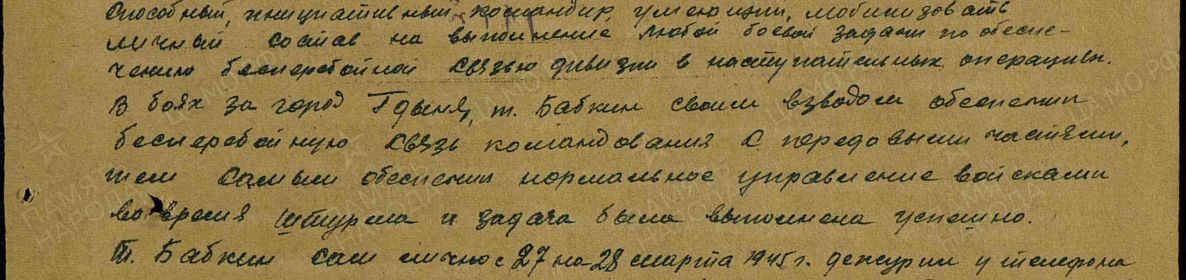 Способный, инициативный командир, умеющий, мобилизовать
личный состав на выполнение любой боевой задачи по обеспе-
чению бесперебойной связью дивизии в наступательных операциях.
В боях за город Гдыня, т. Бабкин своим взводом обеспечил
бесперебойную связь командования с передовыми частями,
тем самым обеспечил нормальное управление войсками
во время штурма и задача была выполнена успешно.
Т. Бабкин сам лично с 27 на 28 марта 1945 г. дежурил у телефона